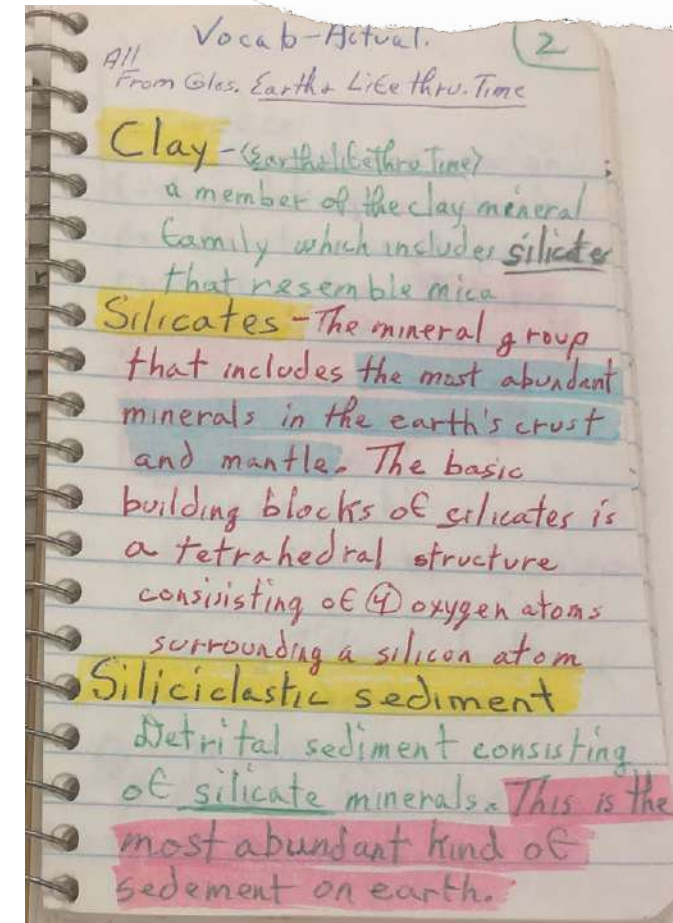 Vocab-Actual.
2
All
From Glos. Earth & Life thru. Time
Clay - (Earth & life thru Time)
a member of the clay meneral
family which includes silicates
that resemble mica
Silicates - The mineral group
that includes the most abundant
minerals in the earth's crust
and mantle. The basic
building blocks of silicates is
a tetrahedral structure
consisisting of 4 oxygen atoms
surrounding a silicon atom
Siliciclastic sediment
Detrital sediment consisting
of silicate minerals. This is the
most abundant kind of
sedement on earth.